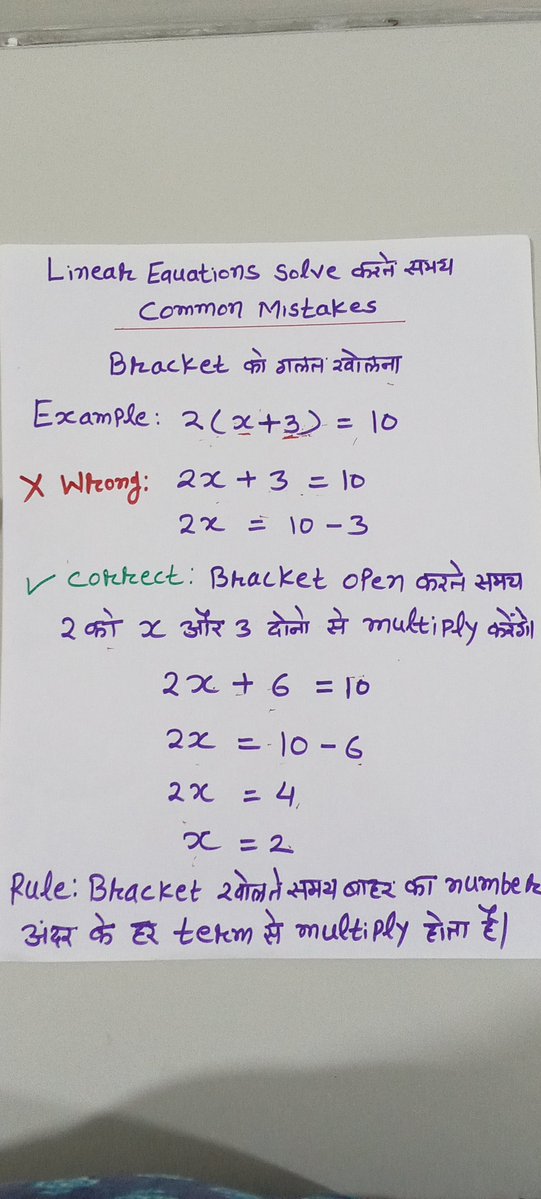 Linear Equations Solve करने समय
Common Mistakes
Bracket को गलत खोलना
Example: 2(x+3) = 10
X Wrong: 2x + 3 = 10
2x = 10 - 3
✓ Correct: Bracket open करने समय
2 को x और 3 दोनो से multiply करेंगे।
2x + 6 = 10
2x = 10 - 6
2x = 4
x = 2
Rule: Bracket खोलते समय बाहर का number
अंदर के हर term से multiply होता है।